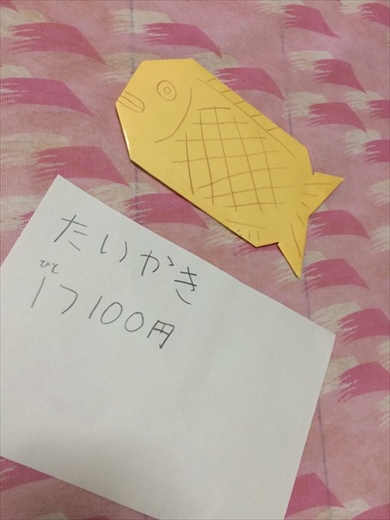 たいかき
ひと
1つ100円